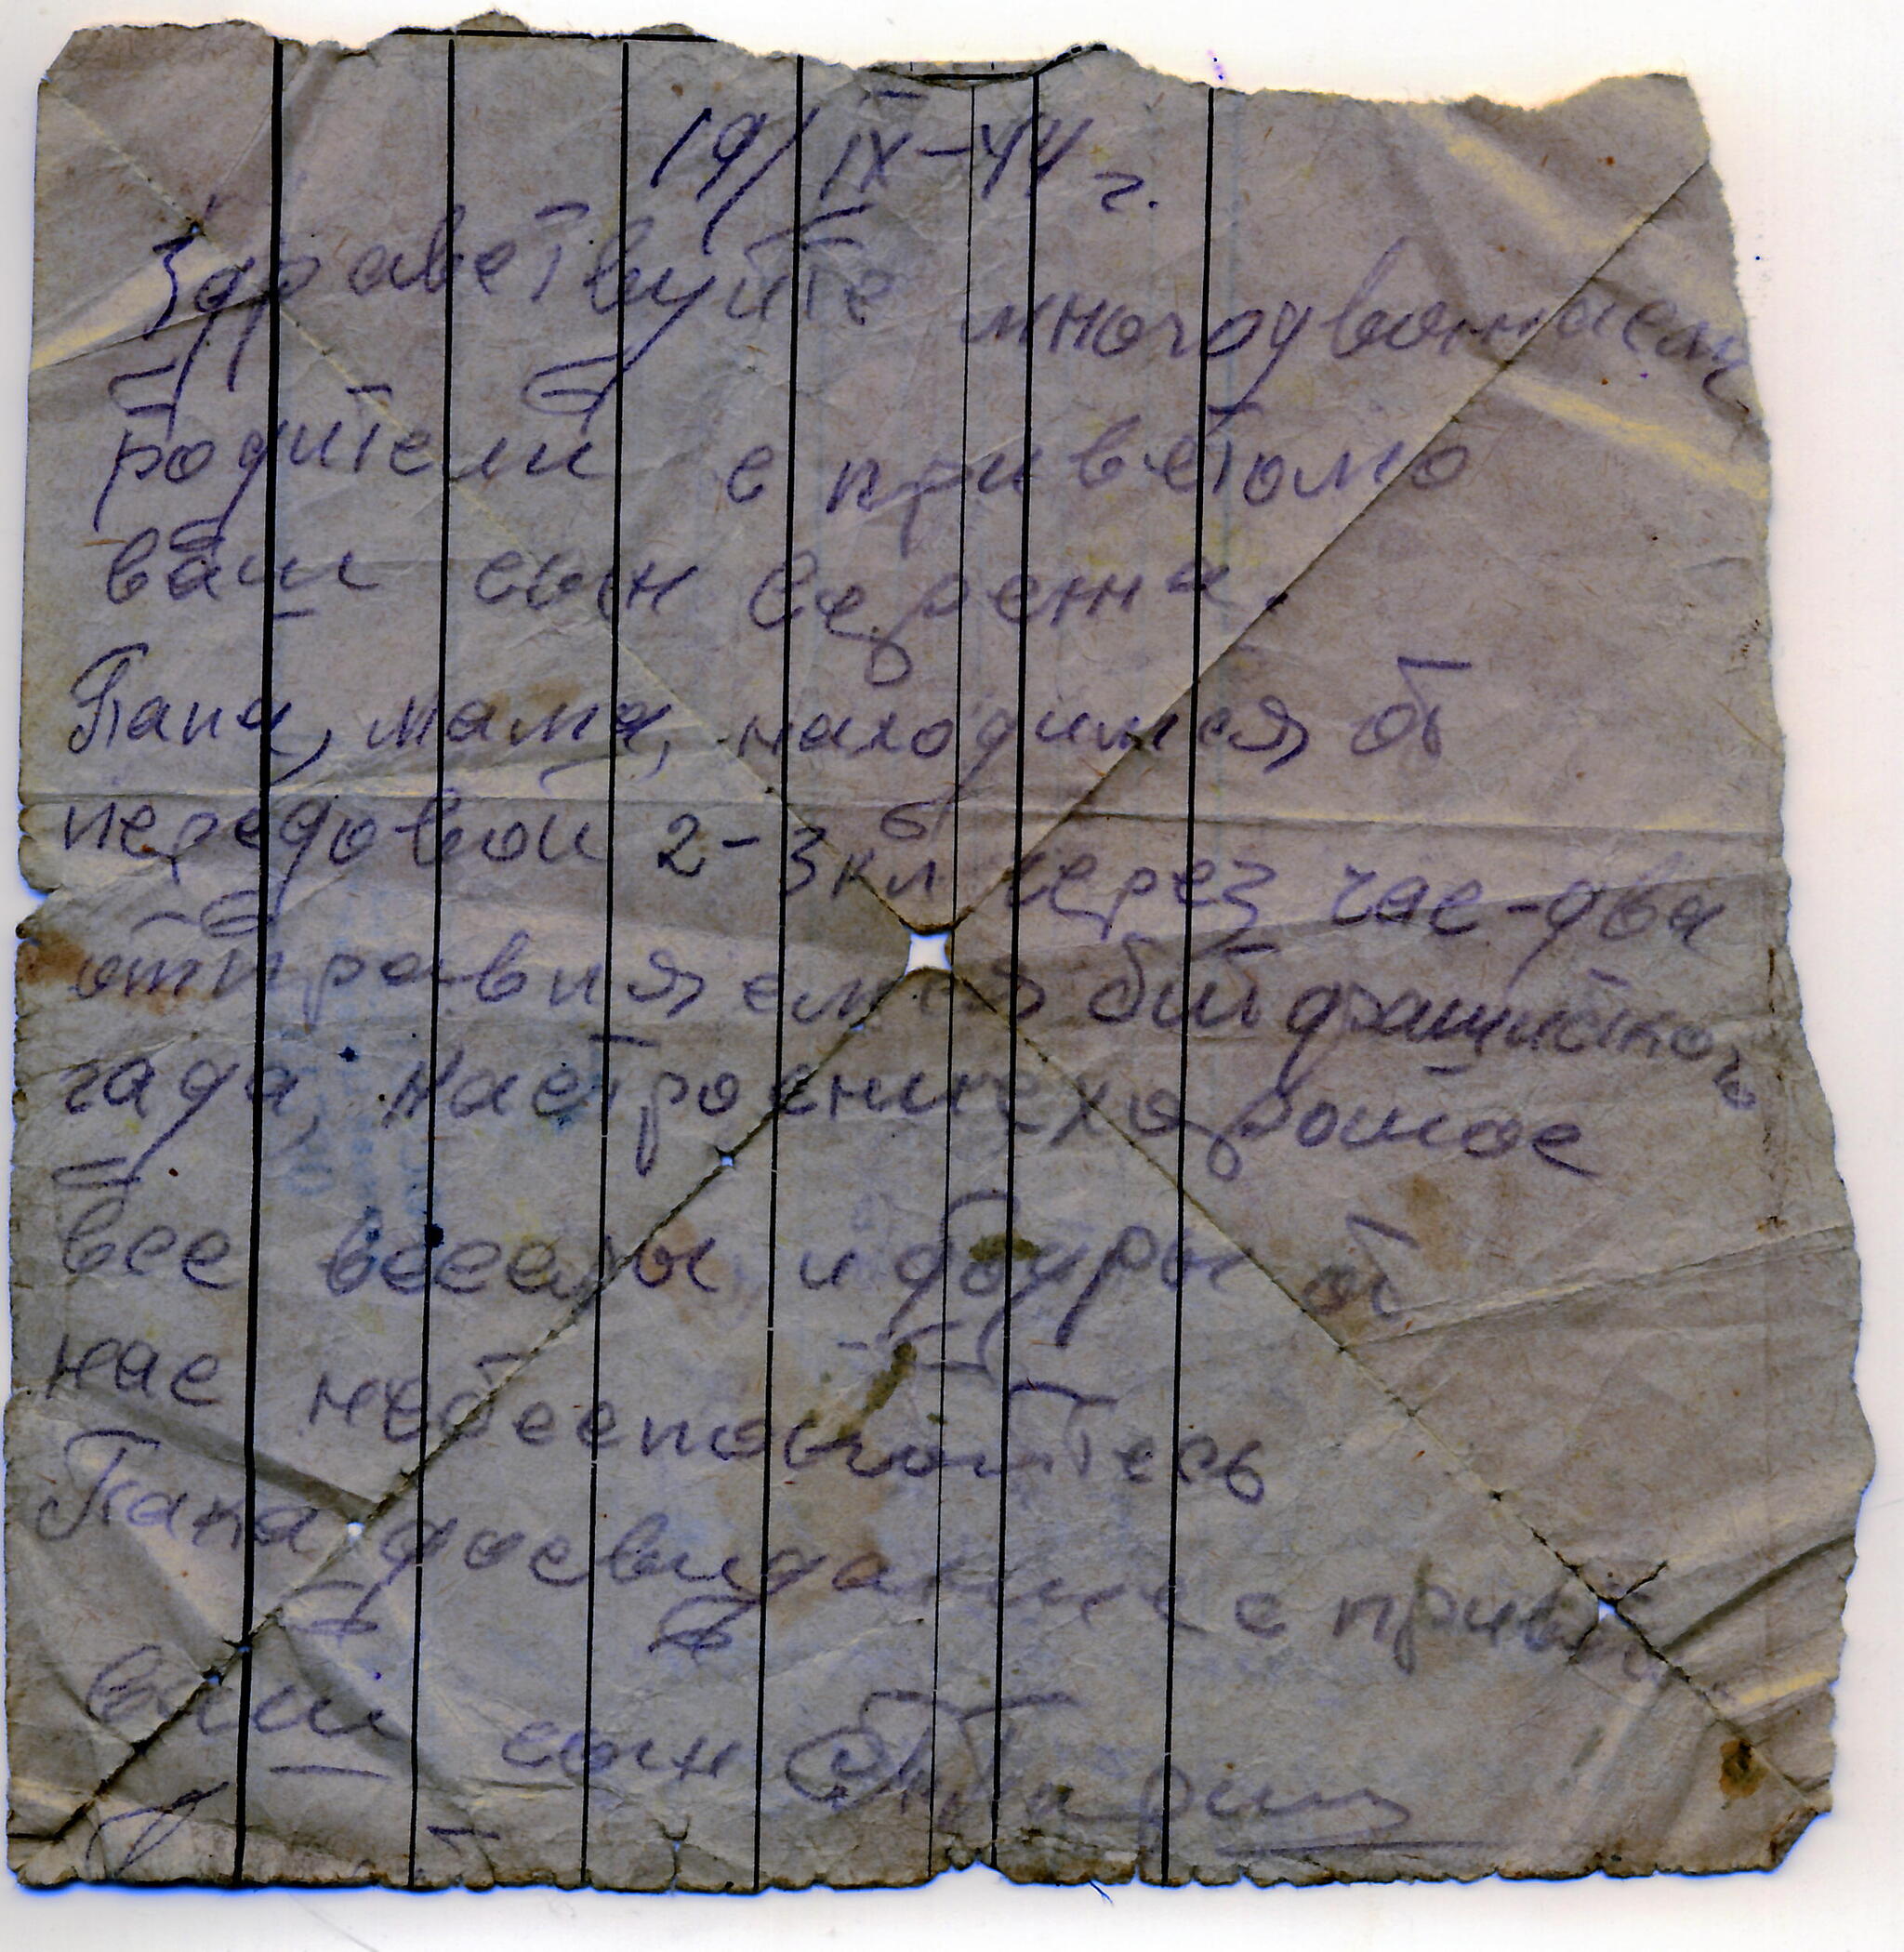 19/IX-44 г.
Здравствуйте многоуважаемы
родители с приветомо
ваш сын
Папа, мама, находимся от
передовой 2-3 км через час-два
отправляемся бить фашиског
гада, настроениехорошое
все веселы и бодры об
нас небеспокойтесь
Папа досвидание с привет
ваш сын